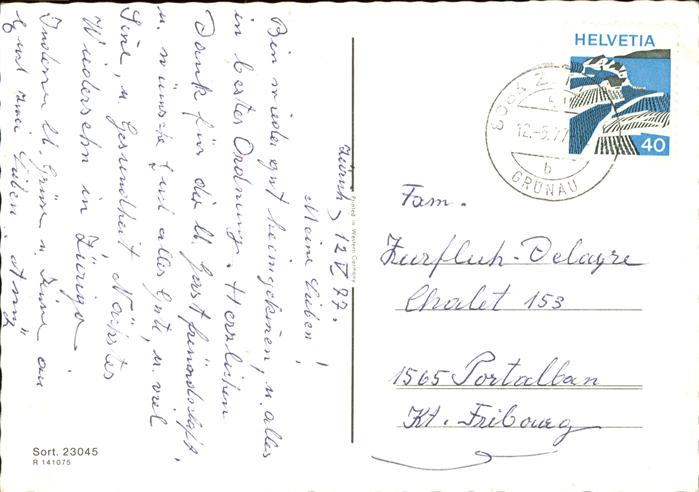 Zürich, 12 V 77.
Meine Lieben!
Bin wieder gut heimgekommen, u. alles
in bester Ordnung. Herzlichen
Dank für die lb. Gastfreundschaft,
u. wünsche Euch alles Gute, u. viel
u. Gesundheit Nächstes
Wiedersehn in Zürigo.
Indem lb. Grüsse u. an
Euch zwei Lieben
HELVETIA
40
8064 Z
12.-5.77
b
GRÜNAU
Printed in Western Germany
Fam.
Zurfluh-Delayre
Chalet 153
1565 Portalban
Kt. Fribourg
Sort. 23045
R 141075